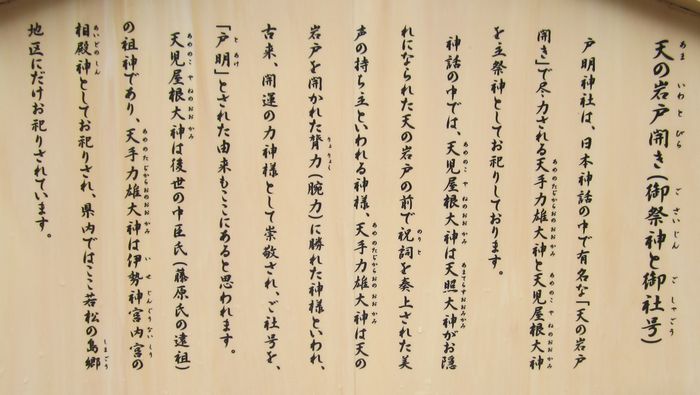 天の岩戸開き(御祭神と御社号)
戸明神社は、日本神話の中で有名な「天の岩戸
開き」で尽力される天手力雄大神と天児屋根大神
を主祭神としてお祀りしております。
神話の中では、天児屋根大神は天照大神がお隠
れになられた天の岩戸の前で祝詞を奏上された美
声の持ち主といわれる神様、天手力雄大神は天の
岩戸を開かれた膂力(腕力)に勝れた神様といわれ、
古来、開運の力神様として崇敬され、ご社号を、
「戸明」とされた由来もここにあると思われます。
天児屋根大神は後世の中臣氏(藤原氏の遠祖)
の祖神であり、天手力雄大神は伊勢神宮内宮の
相殿神としてお祀りされ、県内ではここ若松の島郷
地区にだけお祀りされています。